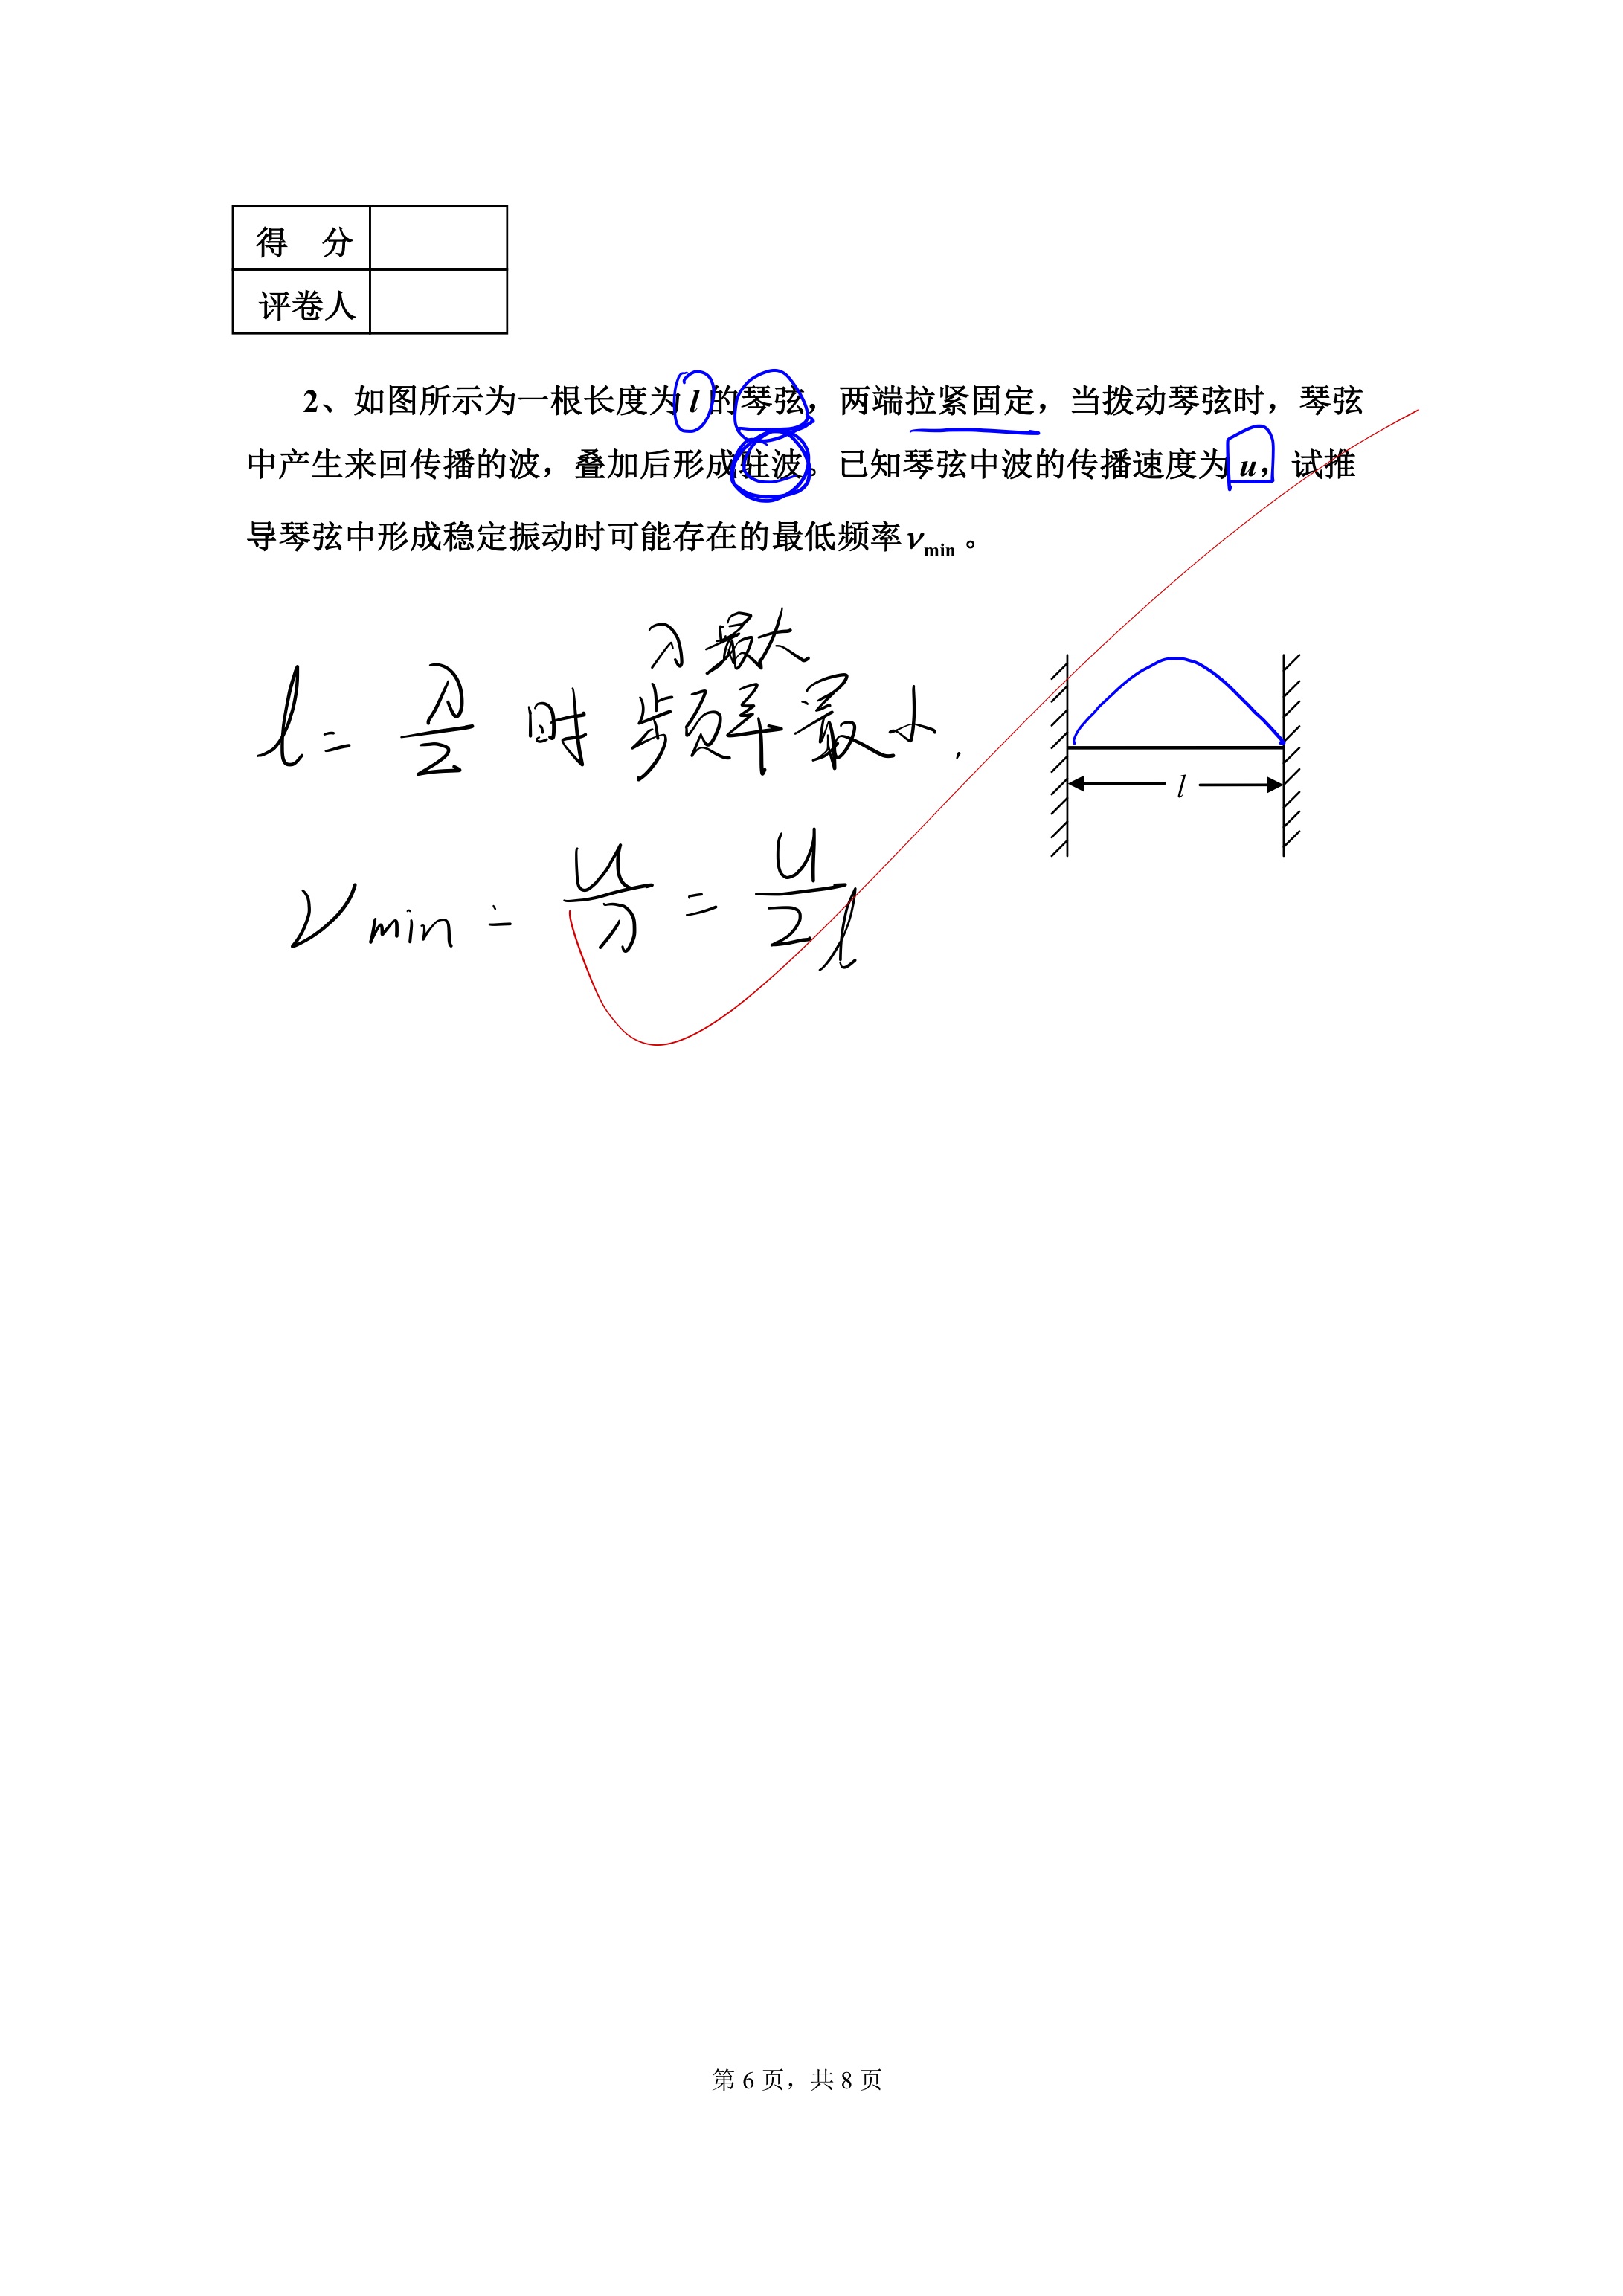 得 分
评卷人
2、如图所示为一根长度为 l 的琴弦，两端拉紧固定，当拨动琴弦时，琴弦
中产生来回传播的波，叠加后形成驻波。已知琴弦中波的传播速度为 u，试推
导琴弦中形成稳定振动时可能存在的最低频率 νmin 。
λ最大
l = λ/2 时 频率最小.
l
νmin = u/λ = u/2l
第 6 页，共 8 页